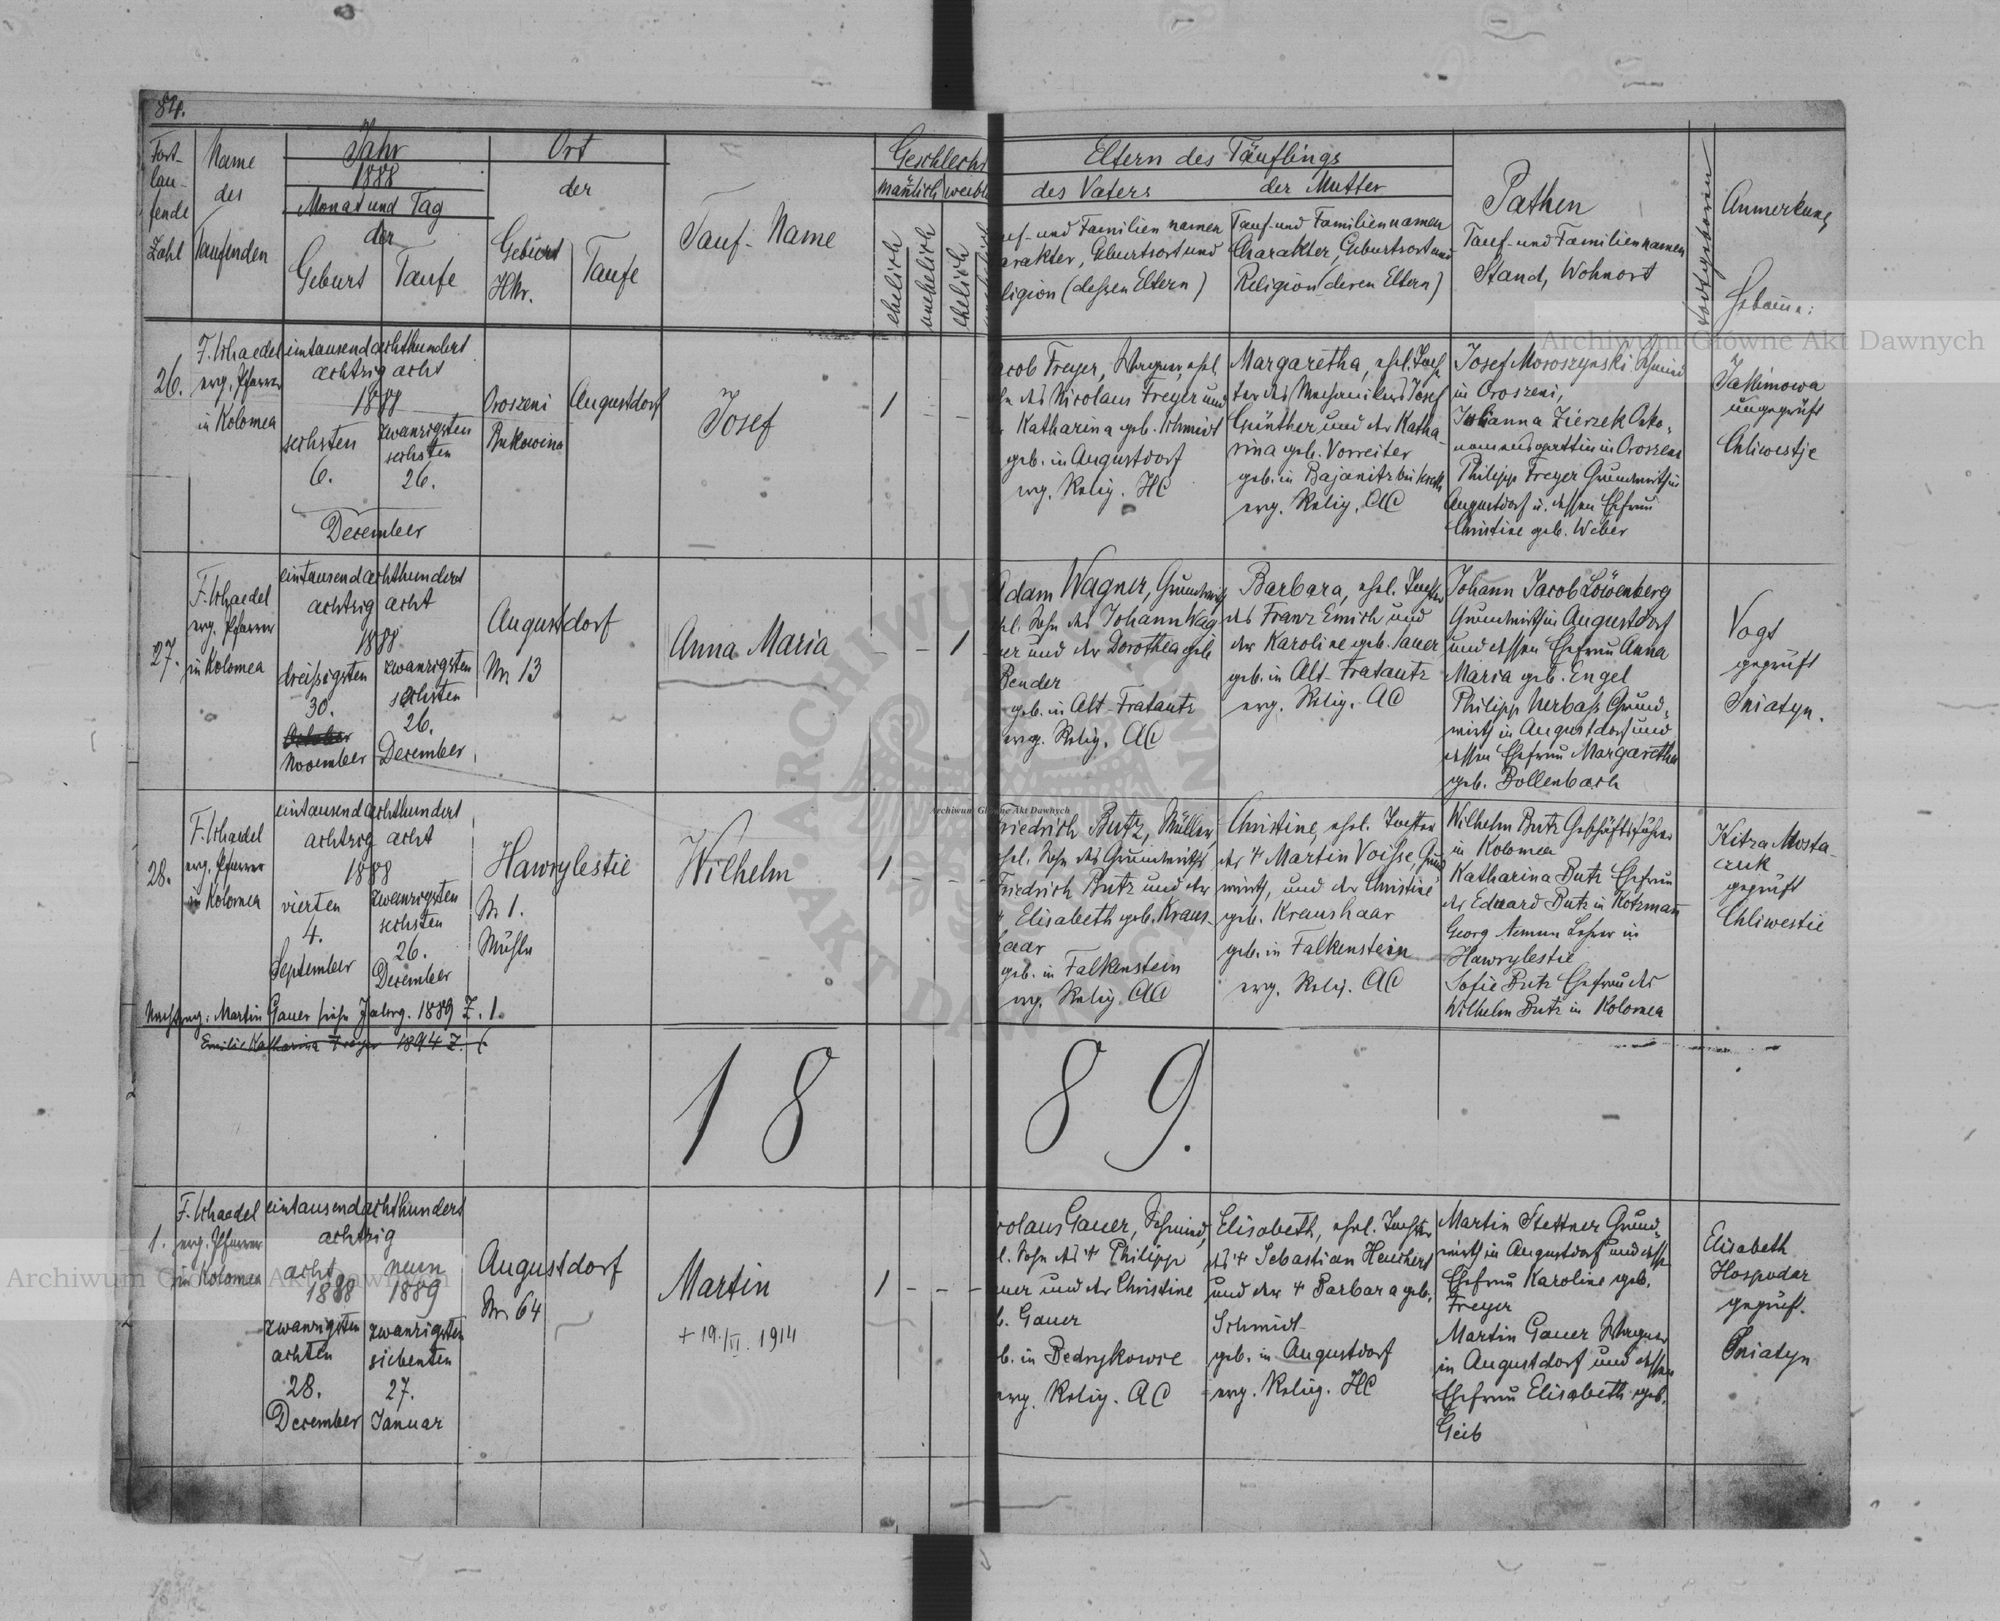 84.
Fort-
lau-
fende
Zahl
Name
des
Taufenden
Jahr
1888
Monat und Tag
der
Geburt
Taufe
Ort
der
Geburt
HNr.
Taufe
Tauf-Name
Geschlecht
mänlich
weibli
ehelich
unehelich
ehelich
Eltern des Täuflings
des Vaters
der Mutter
uf- und Familiennamen
arakter, Geburtsort und
ligion (dessen Eltern)
Tauf- und Familiennamen
Charakter, Geburtsort und
Religion (deren Eltern)
Pathen
Tauf- und Familiennamen
Stand, Wohnort
todtgeboren
Anmerkung
Hebame:
26.
F. Schaedel
evg. Pfarrer
in Kolomea
eintausendachthundert
achtzig acht
1888
sechsten
6.
zwanzigsten
sechsten
26.
December
Oroszeni
Bukowina
Augustdorf
Josef
1 - -
acob Freyer, Wagner, ehl.
hn des Nicolaus Freyer und
r Katharina geb. Schmidt
geb. in Augustdorf
evg. Relig. HC
Margaretha, ehl. Toch
ter des Mechanikers Josef
Günther und der Katha-
rina geb. Vorreiter
evg. Relig. AC
Josef Moroszynski Schmied
in Oroszeni,
Philipp Freyer Grundwirth in
Augustdorf u. dessen Ehefrau
Christine geb. Weber
Jakimowa
ungeprüft
Chliwestje
27.
F. Schaedel
evg. Pfarrer
in Kolomea
eintausendachthundert
achtzig acht
1888
dreißigsten
30.
November
zwanzigsten
sechsten
26.
December
Augustdorf
Nr. 13
Anna Maria
- - 1
Adam Wagner, Grundwirth
hl. Sohn des Johann Wag
ner und der Dorothea geb
Bender
geb. in Alt-Fratautz
evg. Relig. AC
Barbara, ehl. Tochter
des Franz Emich und
der Karoline geb. Sauer
geb. in Alt-Fratautz
evg. Relig. AC
Johann Jacob Löwenberg
Grundwirth in Augustdorf
und dessen Ehefrau Anna
Maria geb. Engel
Philipp Herbaß Grund-
wirth in Augustdorf und
dessen Ehefrau Margaretha
geb. Bollenbach
Vogt
geprüft
Sniatyn.
28.
F. Schaedel
evg. Pfarrer
in Kolomea
eintausendachthundert
achtzig acht
1888
vierten
4.
September
zwanzigsten
sechsten
26.
December
Hawrylestie
Nr. 1.
Mühle
Wilhelm
1 - -
Friedrich Butz, Müller,
ehl. Sohn des Grundwirths
Friedrich Butz und der
† Elisabeth geb. Kraus-
haar
geb. in Falkenstein
evg. Relig. AC
Christine, ehl. Tochter
des † Martin Voisse, Grund
wirth, und der Christine
geb. Kraushaar
geb. in Falkenstein
evg. Relig. AC
Wilhelm Butz Geschäftsführer
in Kolomea
Katharina Butz Ehefrau
des Eduard Butz in Kotzman
Lehrer in
Hawrylestie
Sofie Butz Ehefrau des
Wilhelm Butz in Kolomea
Kitza Mosta-
czuk
geprüft
Chliwestie
Nachtrag: Martin Gauer siehe Jahrg. 1889 Z. 1.
Emilie Katharina Freyer 1894 Z.
1889.
1.
F. Schaedel
evg. Pfarrer
in Kolomea
eintausendachthundert
achtzig
acht
1888
neun
1889
zwanzigsten
achten
28.
December
zwanzigsten
siebenten
27.
Januar
Augustdorf
Nr. 64
Martin
+ 19./VI. 1914
1 - - -
colaus Gauer, Schmied,
l. Sohn des † Philipp
uer und der Christine
b. Gauer
b. in Bedrykowce
evg. Relig. AC
Elisabeth, ehl. Tochter
des † Sebastian Heuchert
und der † Barbara geb.
Schmidt
geb. in Augustdorf
evg. Relig. HC
Martin Stettner Grund-
wirth in Augustdorf und dessen
Ehefrau Karoline geb.
Freyer
Martin Gauer Wagner
in Augustdorf und dessen
Ehefrau Elisabeth geb.
Geib
Elisabeth
Hospodar
geprüf.
Sniatyn
Archiwum Główne Akt Dawnych
Archiwum Główne Akt Dawnych
Archiwum Główne Akt Dawnych
ARCHIWUM GŁÓWNE AKT DAWNYCH